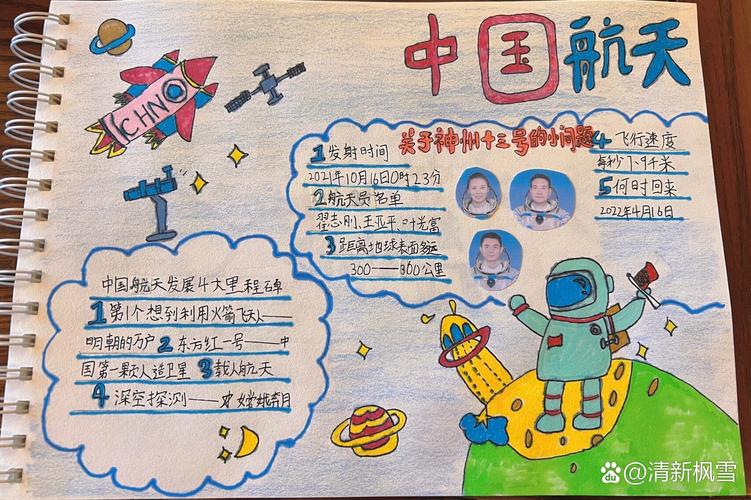 中国航天
CHNO
关于神州十三号的小问题
1发射时间
2021年10月16日0时23分
2航天员名单
翟志刚、王亚平、叶光富
3距离地球表面多远
300——360公里
4 飞行速度
每秒7.9千米
5何时回来
2022年4月16日
中国航天发展4大里程碑
1第1个想到利用火箭飞天人——
明朝的万户 2东方红一号——中
国第一颗人造卫星 3载人航天
4深空探测——嫦娥奔月
@清新枫雪